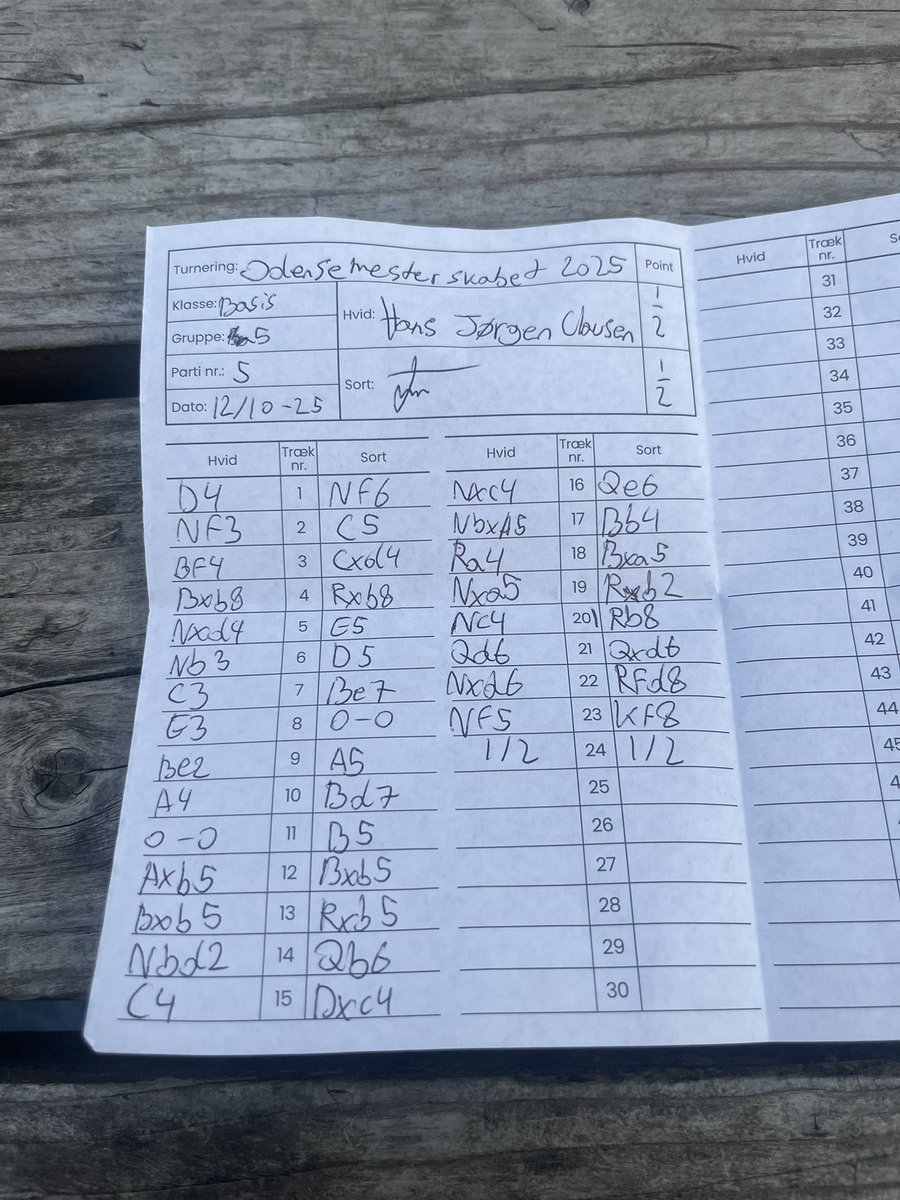 Turnering: Odensemesterskabet 2025 Point
Klasse: Basis Hvid: Hans Jørgen Clausen 1/2
Gruppe: 5
Parti nr.: 5 Sort: 1/2
Dato: 12/10-25
Hvid Træk nr. Sort
D4 1 NF6
NF3 2 C5
BF4 3 Cxd4
Bxb8 4 Rxb8
Nxd4 5 E5
Nb3 6 D5
C3 7 Be7
E3 8 0-0
Be2 9 A5
A4 10 Bd7
0-0 11 B5
Axb5 12 Bxb5
Bxb5 13 Rxb5
Nbd2 14 Qb6
C4 15 Dxc4
Hvid Træk nr. Sort
Nxc4 16 Qe6
NbxA5 17 Bb4
Ra4 18 Bxa5
Nxa5 19 Rxb2
Nc4 20 Rb8
Qd6 21 Qxd6
Nxd6 22 RFd8
NF5 23 KF8
1/2 24 1/2
25
26
27
28
29
30
Hvid Træk nr. S
31
32
33
34
35
36
37
38
39
40
41
42
43
44
45